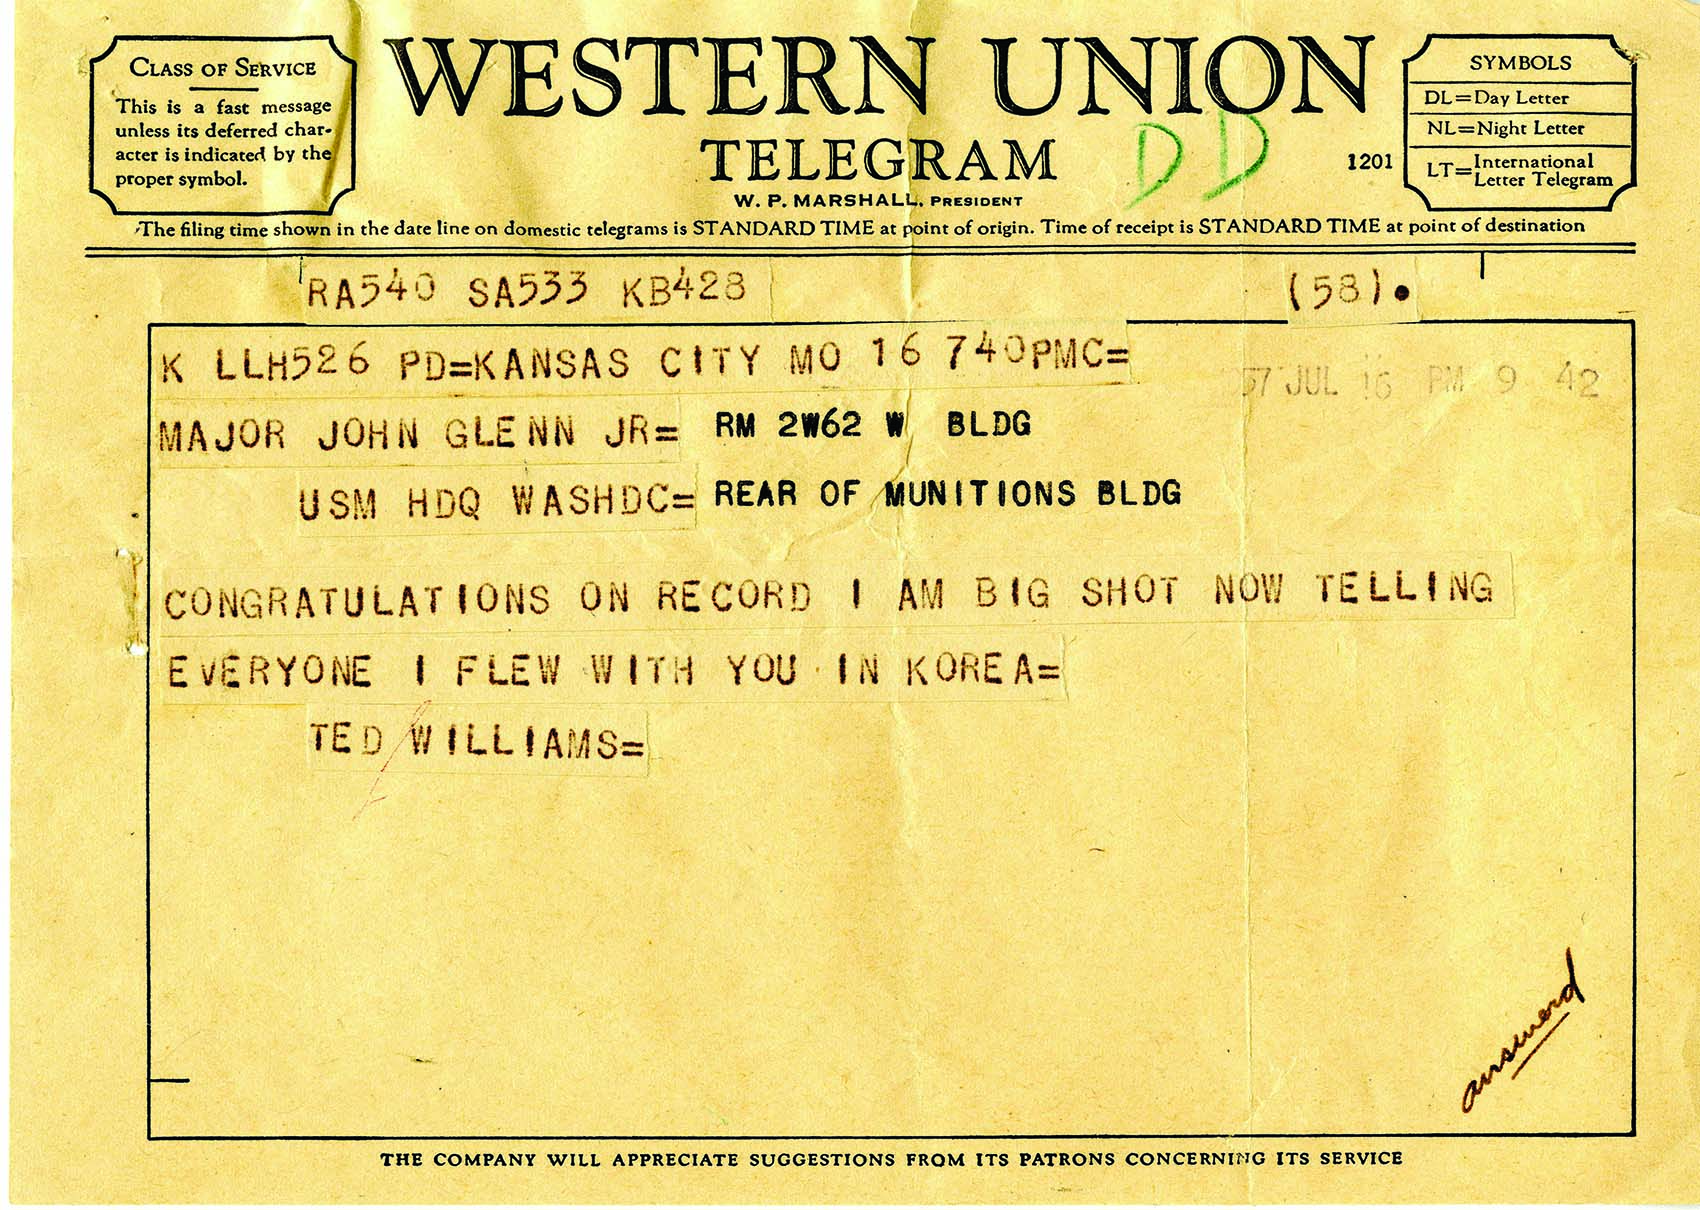 CLASS OF SERVICE
This is a fast message
unless its deferred char-
acter is indicated by the
proper symbol.
WESTERN UNION
TELEGRAM
W. P. MARSHALL, PRESIDENT
DD
1201
SYMBOLS
DL=Day Letter
NL=Night Letter
LT=International Letter Telegram
The filing time shown in the date line on domestic telegrams is STANDARD TIME at point of origin. Time of receipt is STANDARD TIME at point of destination
RA540 SA533 KB428 (58).
K LLH526 PD=KANSAS CITY MO 16 740PMC=
57 JUL 16 PM 9 42
MAJOR JOHN GLENN JR= RM 2W62 W BLDG
USM HDQ WASHDC= REAR OF MUNITIONS BLDG
CONGRATULATIONS ON RECORD I AM BIG SHOT NOW TELLING
EVERYONE I FLEW WITH YOU IN KOREA=
TED WILLIAMS=
answerd
THE COMPANY WILL APPRECIATE SUGGESTIONS FROM ITS PATRONS CONCERNING ITS SERVICE